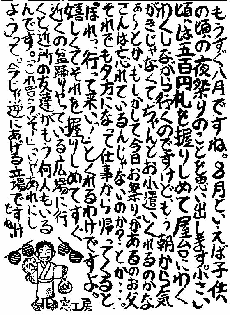 もうすぐ八月ですね。8月といえば子供
の頃の夜祭りのことを思い出します。小さい
頃は五百円札を握りしめて屋台にわく
わくしながら行くのですけども、もう朝から気
が気じゃなくて、ちゃんとお小遣いくれるのかな
ぁ〜とか、もしかして今日お祭りがあるのお父
さんは忘れているんじゃないのか?とか・・・。
それでも夕方になって仕事から帰ってくると、
ほれっ、行って来い!としてくれるわけですよ。
嬉しくてそれを握りしめてすぐ
近くの盆踊りやっている広場に行
くと近所の友達がもう何人もいる
んです。これ言うっと、こづかいあれにし
よって。今じゃ逆にあげる立場ですね
窯工房